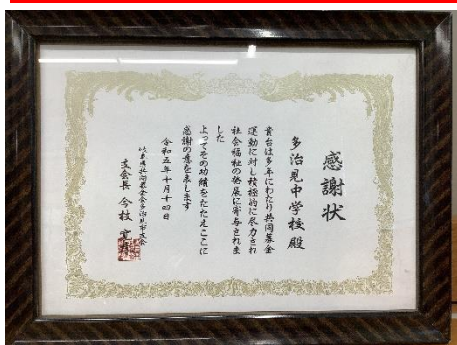 感謝状
多治見中学校殿
貴台は多年にわたり共同募金
運動に対し積極的に尽力され
社会福祉の発展に寄与されま
した
よってその功績をたたえここに
感謝の意を表します
令和五年十月十四日
岐阜県共同募金会多治見市支会
支会長 今枝